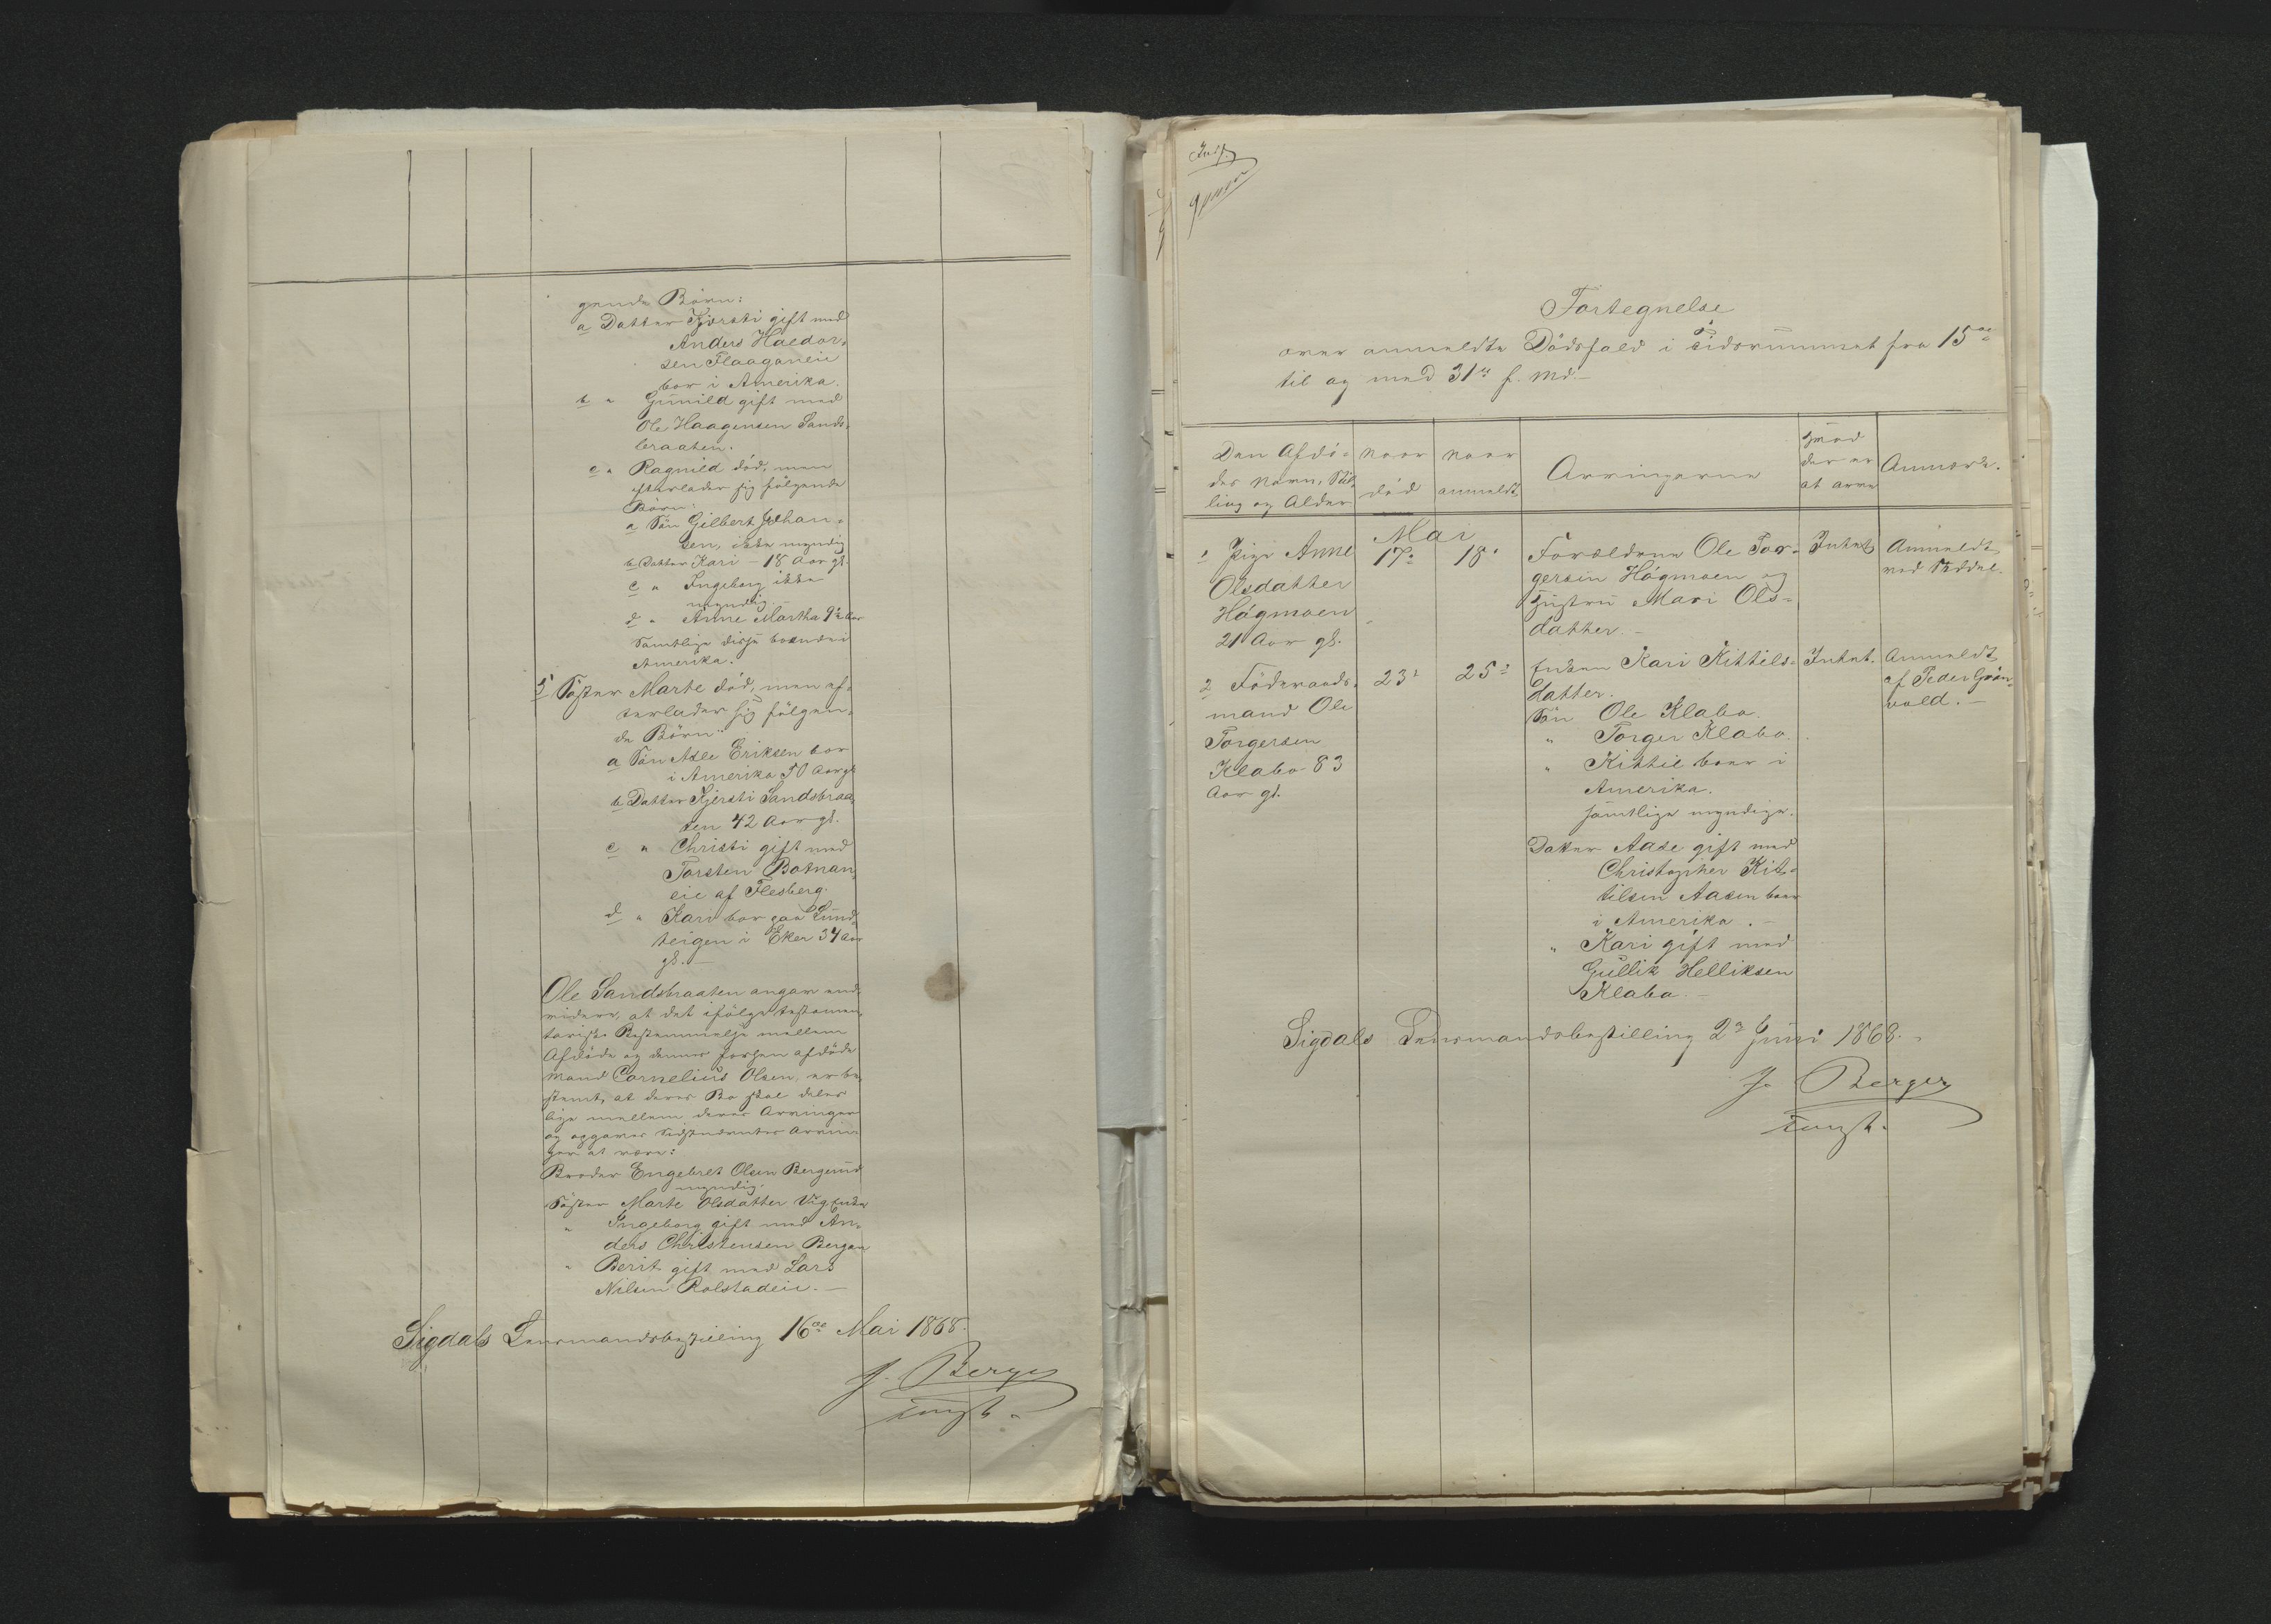 gende Børn:
a Datter Kjersti gift med
Anders Haldor-
sen Flaaganeie
bor i Amerika.
b " Gunild gift med
Ole Haagensen Sands-
braaten.
c " Ragnild død, men
efterlader sig følgende
Børn:
a Søn Gilbert Johan-
sen, ikke myndig
b Datter Kari - 18 Aar gl.
c " Ingeborg ikke
myndig.
d " Anne Martha 9½ Aar
Samtlige disse boende i
Amerika.
5 Søster Marte død, men ef-
terlader sig følgen-
de Børn:
a Søn Asle Eriksen bor
i Amerika 50 Aar gl.
b Datter Kjersti Sandsbraa-
ten 42 Aar gl.
c " Christi gift med
Torsten Botnan-
eie af Flesberg.
d " Kari bor paa Lund-
teigen i Eker 37 Aar
gl. —
Ole Sandsbraaten angav end-
videre, at det ifølge testamen-
tariske Bestemmelse mellem
Afdøde og dennes forhen afdøde
Mand Cornelius Olsen, er be-
stemt, at deres Bo skal deles
lige mellem deres Arvinger
og opgaves Sidstnævntes Arvin-
ger at være:
Broder Engebret Olsen Bergerud
myndig.
Søster Marte Olsdatter Vig Enke
" Ingeborg gift med An-
ders Christensen Bergan
" Berit gift med Lars
Nilsen Rolstadeie. —
Sigdals Lensmandsbestilling 16de Mai 1868.
J. Berger
const.
Indf.
Fortegnelse
over anmeldte Dødsfald i Tidsrummet fra 15de
til og med 31te f. Md. —
Den Afdø-
des Navn, Stil-
ling og Alder
Naar
død
Naar
anmeldt
Arvingerne
Hvad
der er
at arve
Anmærk.
Mai
1 Pige Anne
Olsdatter
Høgmoen
21 Aar gl.
17de
18de
Forældrene Ole Tor-
gersen Høgmoen og
Hustru Mari Ols-
datter. —
Intet
Anmeldt
ved Seddel.
2 Føderaads-
mand Ole
Torgersen
Klabo 83
Aar gl.
23de
25de
Enken Kari Kittils-
datter.
Søn Ole Klabo.
" Torger Klabo.
" Kittil boer i
Amerika.
samtlige myndige.
Datter Aase gift med
Christopher Kit-
tilsen Aasen boer
i Amerika. —
" Kari gift med
Gullik Helliksen
Klabo. —
Intet.
Anmeldt
af Peder Grøn-
vold. —
Sigdals Lensmandsbestilling 2den Juni 1868. -
J. Berger
const.